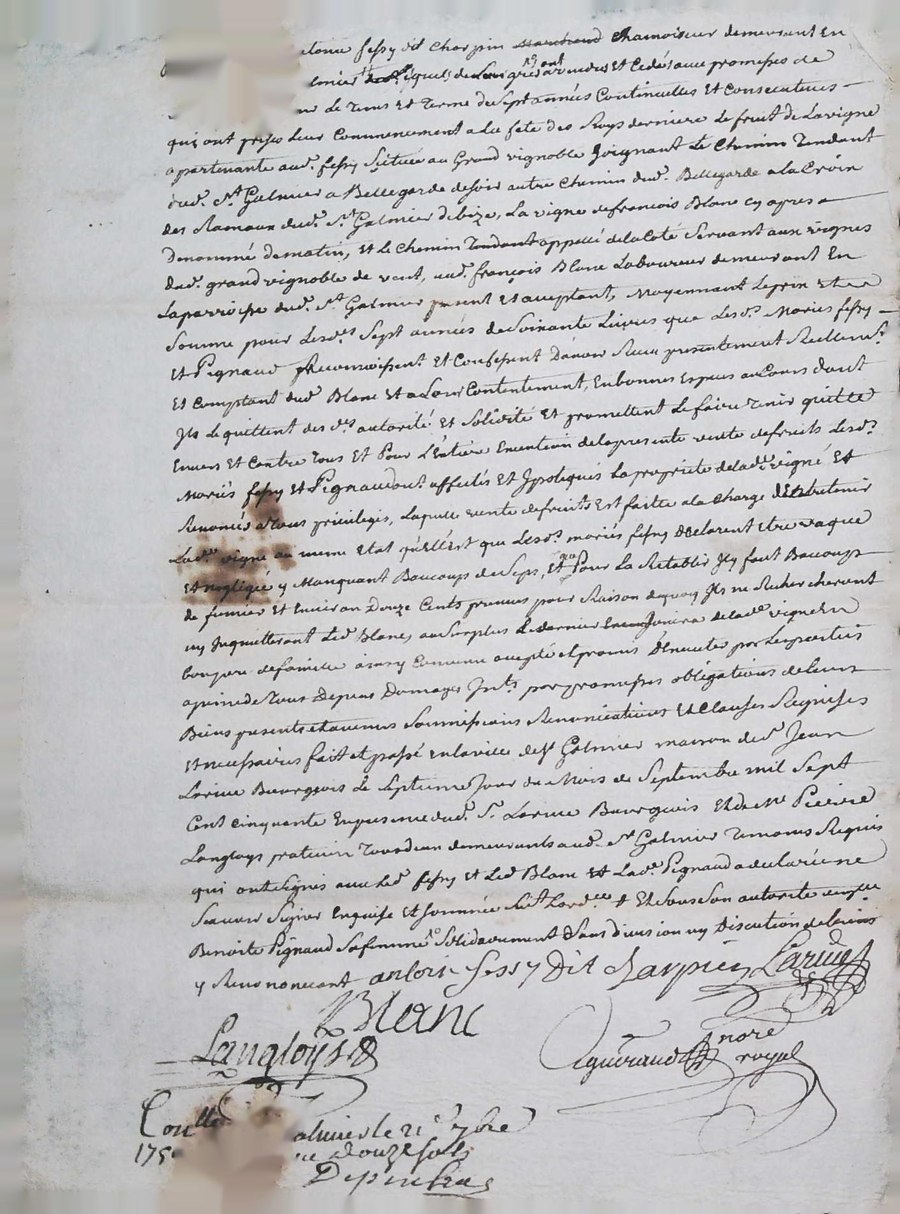 fessy dit Charpin Marchand Chamoiseur demeurant En
et Cedés avec promesses de
de tems et terme de sept années Continuelles et Consecutives
qui ont prises leur Commencement a la fete des Roys derniere Le fruit de La vigne
apartenante aud. fessy scituée au Grand vignoble Joignant Le Chemin Tendant
dud. St. Galmier a Bellegarde de soir autre Chemin dud. Bellegarde a la Croix
des Rameaux dud. St. Galmier de bize, La vigne de françois Blanc cy apres
Denommé de matin, et Le Chemin Tendant appellé de la Cote Servant aux vignes
dud. grand vignoble de vent, aud. françois Blanc Laboureur demeurant En
La parroisse dud. St. Galmier present et acceptant, Moyennant Le prix et
Somme pour Lesd. Sept années de Soixante Livres que Lesd. Mariés fessy
Et Pignaud Reconnoissent et Confessent D'avoir Receu presentement Reellemt.
Et Comptant dud. Blanc et a Leur Contentement, En bonnes Especes au Cours dont
Ils Le quittent des des. autorité et Solidité et promettent Le faire Tenir quitte
Envers et Contre Tous et Pour L'Entiere Execution de la presente vente de fruits Lesd.
Mariés fessy et Pignaud ont affectés et Ypotequés La proprieté de lade. vigne et
Renoncés a Tous privileges, Laquelle vente de fruits est faitte a la Charge d'Entretenir
Lade. vigne au meme Etat qu'elle est que Lesd. mariés fessy declarent etre vaque
et negligée y Manquant Baucoup de Seps, et que Pour La Retablir Il y faut Baucoup
de fumier et Environ Douze Cents pour Raison de quoy Ils ne Rechercheront
ny Inquietteront Led. Blanc, au Surplus Le dernier Jouira de lade. vigne En
bon pere de famille ainsy Convenu accepté et promis D'Executer par Les parties
a peine de Tous Depens Domages Ints. par promesses obligations de leurs
Biens presents et avenirs Soumissions Renonciations et Clauses Requises
et necessaires fait et passé en la ville de St. Galmier maison de Sr. Jean
Larive Bourgeois Le Septieme Jour du Mois de Septembre mil Sept
Cent Cinquante En presence dud. Sr. Larive Bourgeois Et de Me. Pierre
Langloys praticien Tous deux demeurants aud. St. Galmier Temoins Requis
qui ont Signés avec Led. fessy et Led. Blanc et Lade. Pignaud a declaré ne
Scavoir Signer Enquise et Sommée + Et Sous Son autorité
Benoite Pignaud Sa femme Solidairement Sans division ny Discution de biens
y Renonceant antoine fessy Dit Charpin Larive
Blanc
Langloys
Aguiraud nore
royal
Con almier le 21e 7bre
175 douze sols
Depinhac